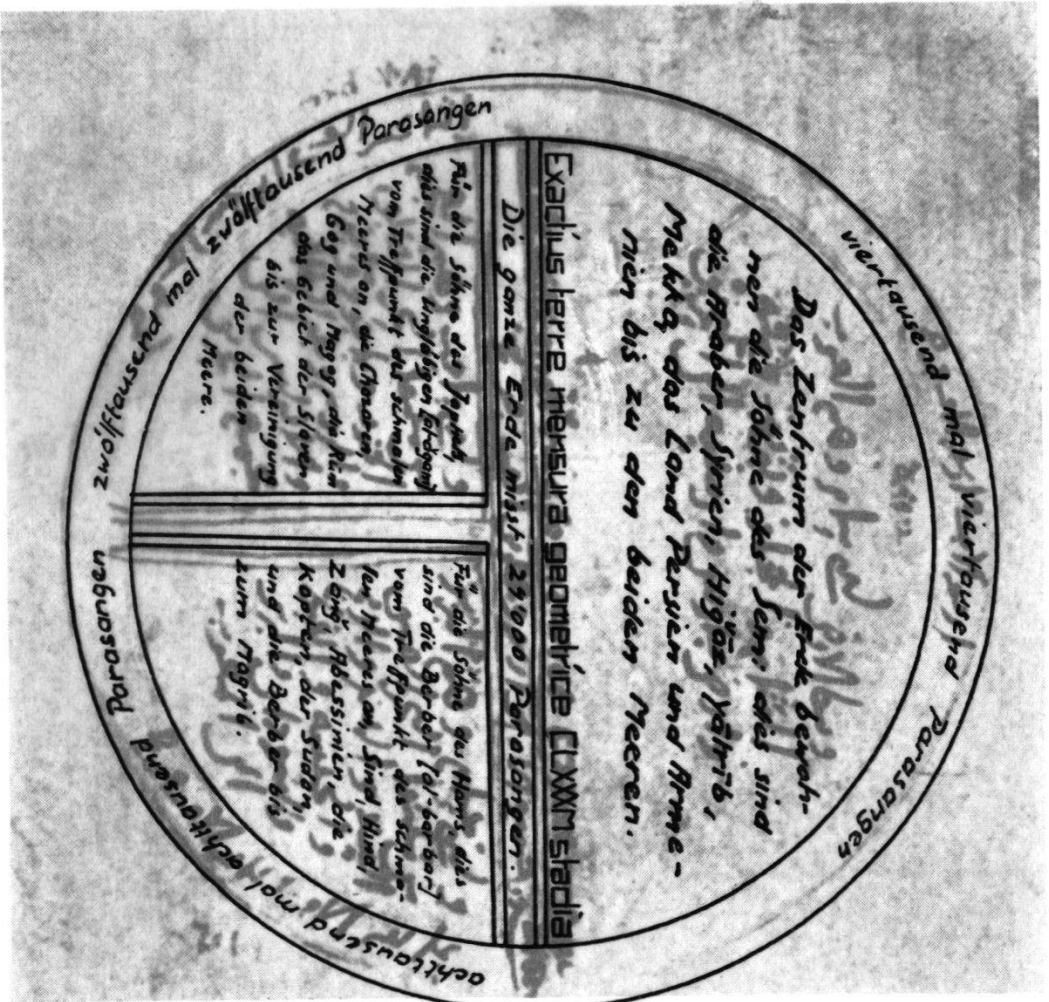 viertausend mal viertausend Parasangen
Das Zentrum der Erde bewoh-
nen die Söhne des Sem: dies sind
die Araber, Syrien, Ḥiǧāz, Yāṯrib,
Mekka, das Land Persien und Arme-
nien bis zu den beiden Meeren.
Exactius terre mensura geometrice CLXXXM stadia
Die ganze Erde misst 24'000 Parasangen.
Für die Söhne des Japhet,
dies sind die Ungläbigen
vom Treffpunkt des schmalen
Meeres an, die Chazaren,
Gog und Magog, die Rūm
das Gebiet der Slaven
bis zur Vereinigung
der beiden
Meere.
zwölftausend mal zwölftausend Parasangen
Für die Söhne des Ham, dies
sind die Berber [al-barbar]
vom Treffpunkt des schma-
len Meeres an, Sind, Hind,
Zanǧ, Abessinien, die
Kopten, der Sudan,
und die Berber bis
zum Maġrib.
achttausend mal achttausend Parasangen